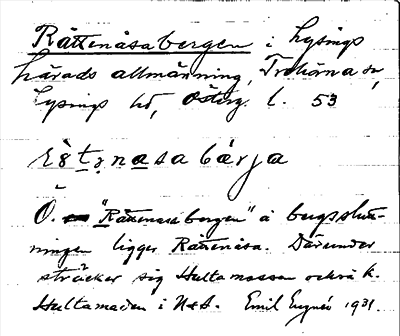 Råttenåsabergen i Lysings
härads allmänning, Trehörna sn,
Lysings hd, Österg. l. 53
Ö. "Råttenåsabergen" å bergsslutt-
ningen ligger Råttenåsa. Därunder
sträcker sig Hultamossen också k.
Hultamaden i N&S. Emil Eugnér 1931.